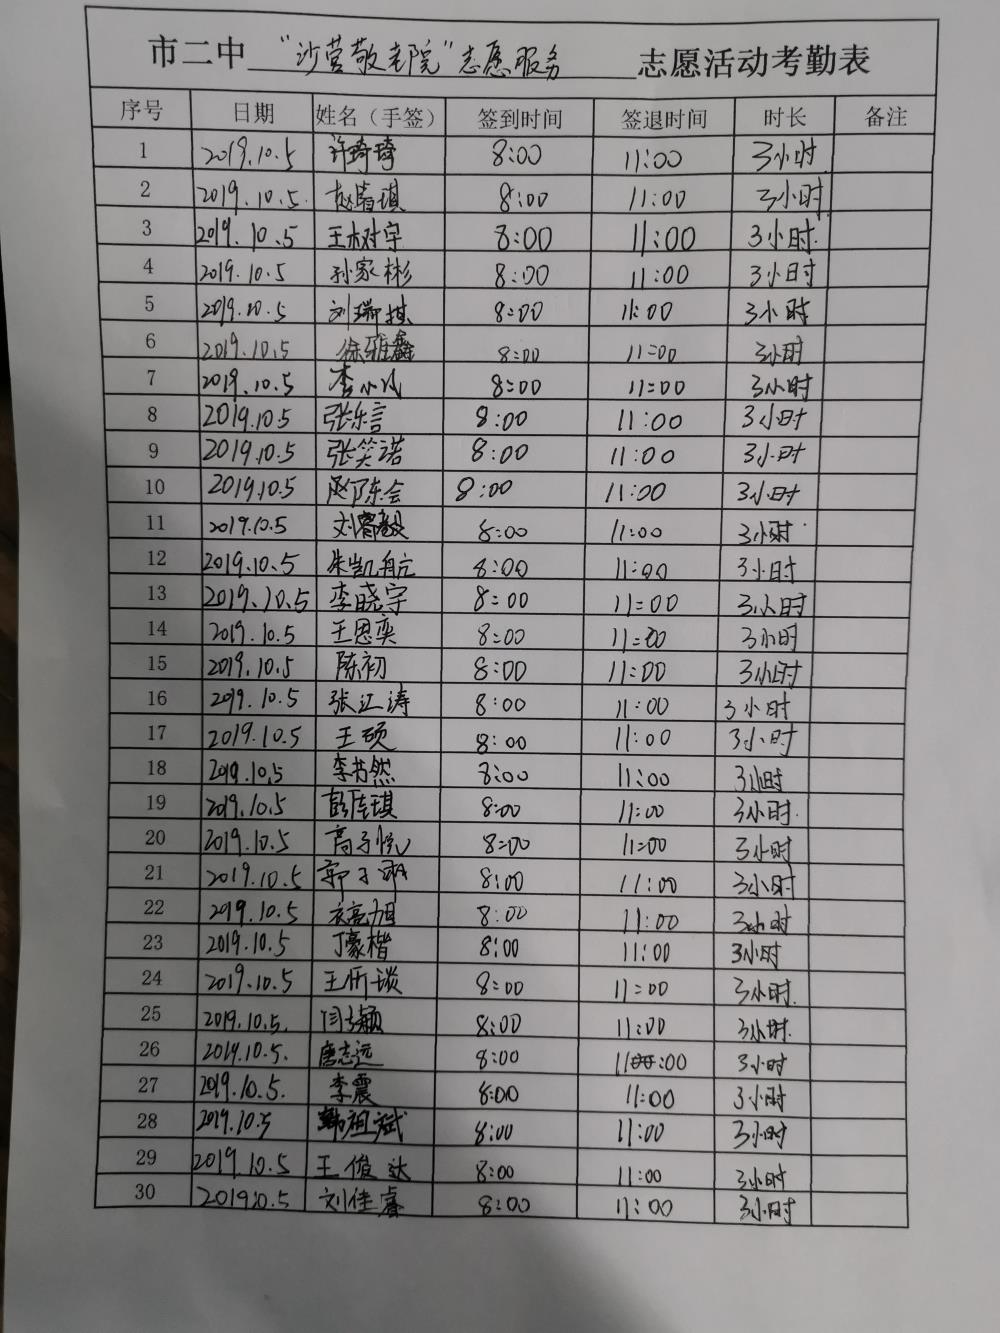 市二中 “沙营敬老院”志愿服务 志愿活动考勤表
序号 日期 姓名（手签） 签到时间 签退时间 时长 备注
1 2019.10.5 许琦琦 8:00 11:00 3小时
2 2019.10.5. 赵清琪 8:00 11:00 3小时
3 2019.10.5 王树宇 8:00 11:00 3小时.
4 2019.10.5 孙家彬 8:00 11:00 3小时
5 2019.10.5 刘瑞祺 8:00 11:00 3小时
6 2019.10.5 徐雅鑫 8:00 11:00 3小时
7 2019.10.5 李小 8:00 11:00 3小时
8 2019.10.5 张乐言 8:00 11:00 3小时
9 2019.10.5 张笑诺 8:00 11:00 3小时
10 2019.10.5 陈会 8:00 11:00 3小时
11 2019.10.5 刘睿毅 8:00 11:00 3小时
12 2019.10.5 朱凯航 8:00 11:00 3小时
13 2019.10.5 李晓宇 8:00 11:00 3小时
14 2019.10.5 王恩奕 8:00 11:00 3小时
15 2019.10.5 陈初 8:00 11:00 3小时
16 2019.10.5 张江涛 8:00 11:00 3小时
17 2019.10.5 王硕 8:00 11:00 3小时
18 2019.10.5 李芳然 8:00 11:00 3小时
19 2019.10.5 彭佳琪 8:00 11:00 3小时.
20 2019.10.5 高子悦 8:00 11:00 3小时
21 2019.10.5 郭子 8:00 11:00 3小时
22 2019.10.5 亮旭 8:00 11:00 3小时
23 2019.10.5 丁豪楷 8:00 11:00 3小时
24 2019.10.5 王昕琰 8:00 11:00 3小时.
25 2019.10.5. 闫颖 8:00 11:00 3小时.
26 2019.10.5. 唐志远 8:00 11:00 3小时
27 2019.10.5. 李震 8:00 11:00 3小时
28 2019.10.5 韩祖斌 8:00 11:00 3小时
29 2019.10.5 王俊达 8:00 11:00 3小时
30 2019.10.5 刘佳睿 8:00 11:00 3小时